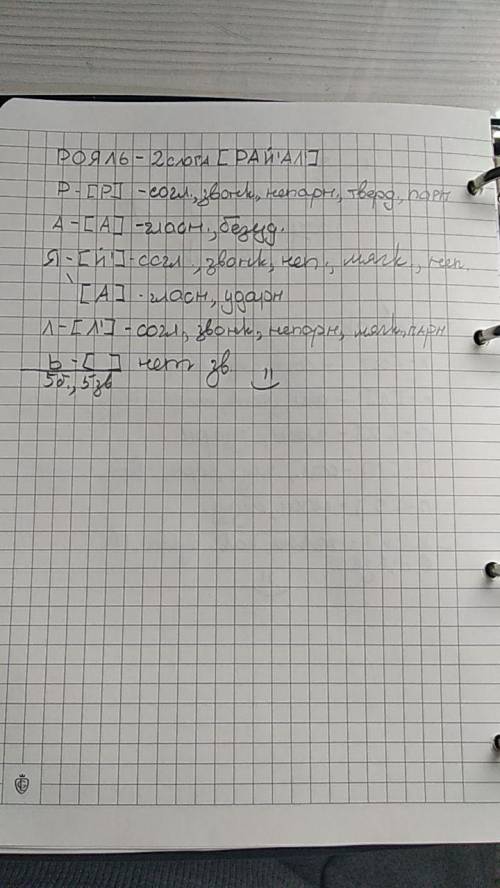 РОЯЛЬ - 2 слога [РАЙ'АЛ']
Р - [Р] - согл., звонк, непарн, тверд, парн
А - [А] - гласн., безуд.
Я - [Й'] - согл., звонк, неп., мягк, неп.
[А] - гласн, ударн
Л - [Л'] - согл, звонк, непарн, мягк, парн
Ь - [ ] нет зв.
5б., 5зв